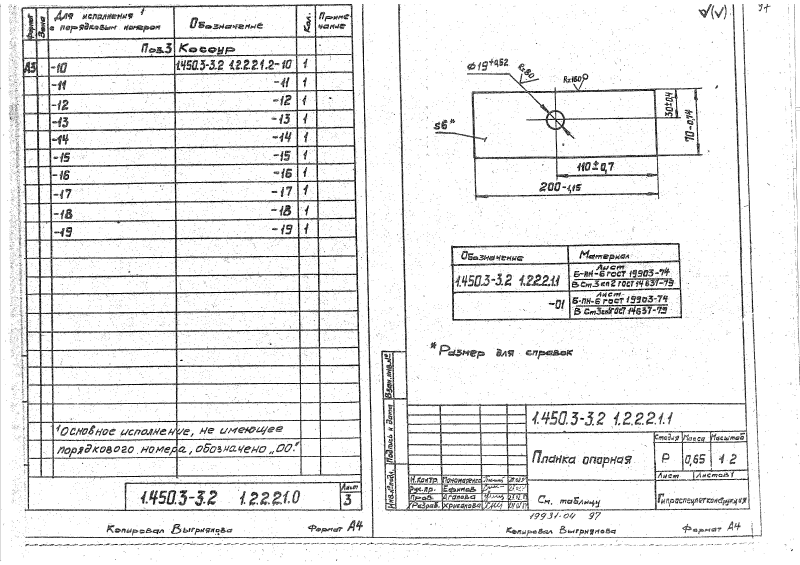 Формат
Зона
Для исполнения¹
с порядковым номером
Обозначение
Кол.
Приме
чание
Поз.3 Косоур
А3 -10 1.450.3-3.2 1.2.2.2.1.2-10 1
-11 -11 1
-12 -12 1
-13 -13 1
-14 -14 1
-15 -15 1
-16 -16 1
-17 -17 1
-18 -18 1
-19 -19 1
¹Основное исполнение, не имеющее
порядкового номера, обозначено „00."
1.450.3-3.2 1.2.2.2.1.0
Лист
3
Копировал Выгриянова Формат А4
Ø19+0,52
Rz80
Rz160
s6*
30±0,4
70-0,74
110±0,7
200-1,15
Обозначение Материал
1.450.3-3.2 1.2.2.2.1.1
Лист
Б-ПН-6 ГОСТ 19903-74
В Ст.3кп2 ГОСТ 14637-79
-01
Лист
Б-ПН-6 ГОСТ 19903-74
*Размер для справок
Взам.инв.№
Подпись и дата
Инв.№подл.
1.450.3-3.2 1.2.2.2.1.1
Планка опорная
Стадия Масса Масштаб
Р 0,65 1:2
Лист Листов 1
Н.контр. Пономаренко
Рук.пр. Ефимов
Пров. Агапова
Разраб. Хрисанова
См. таблицу
Гипроспецлегконструкция
19931-04 97
Копировал Выгриянова Формат А4